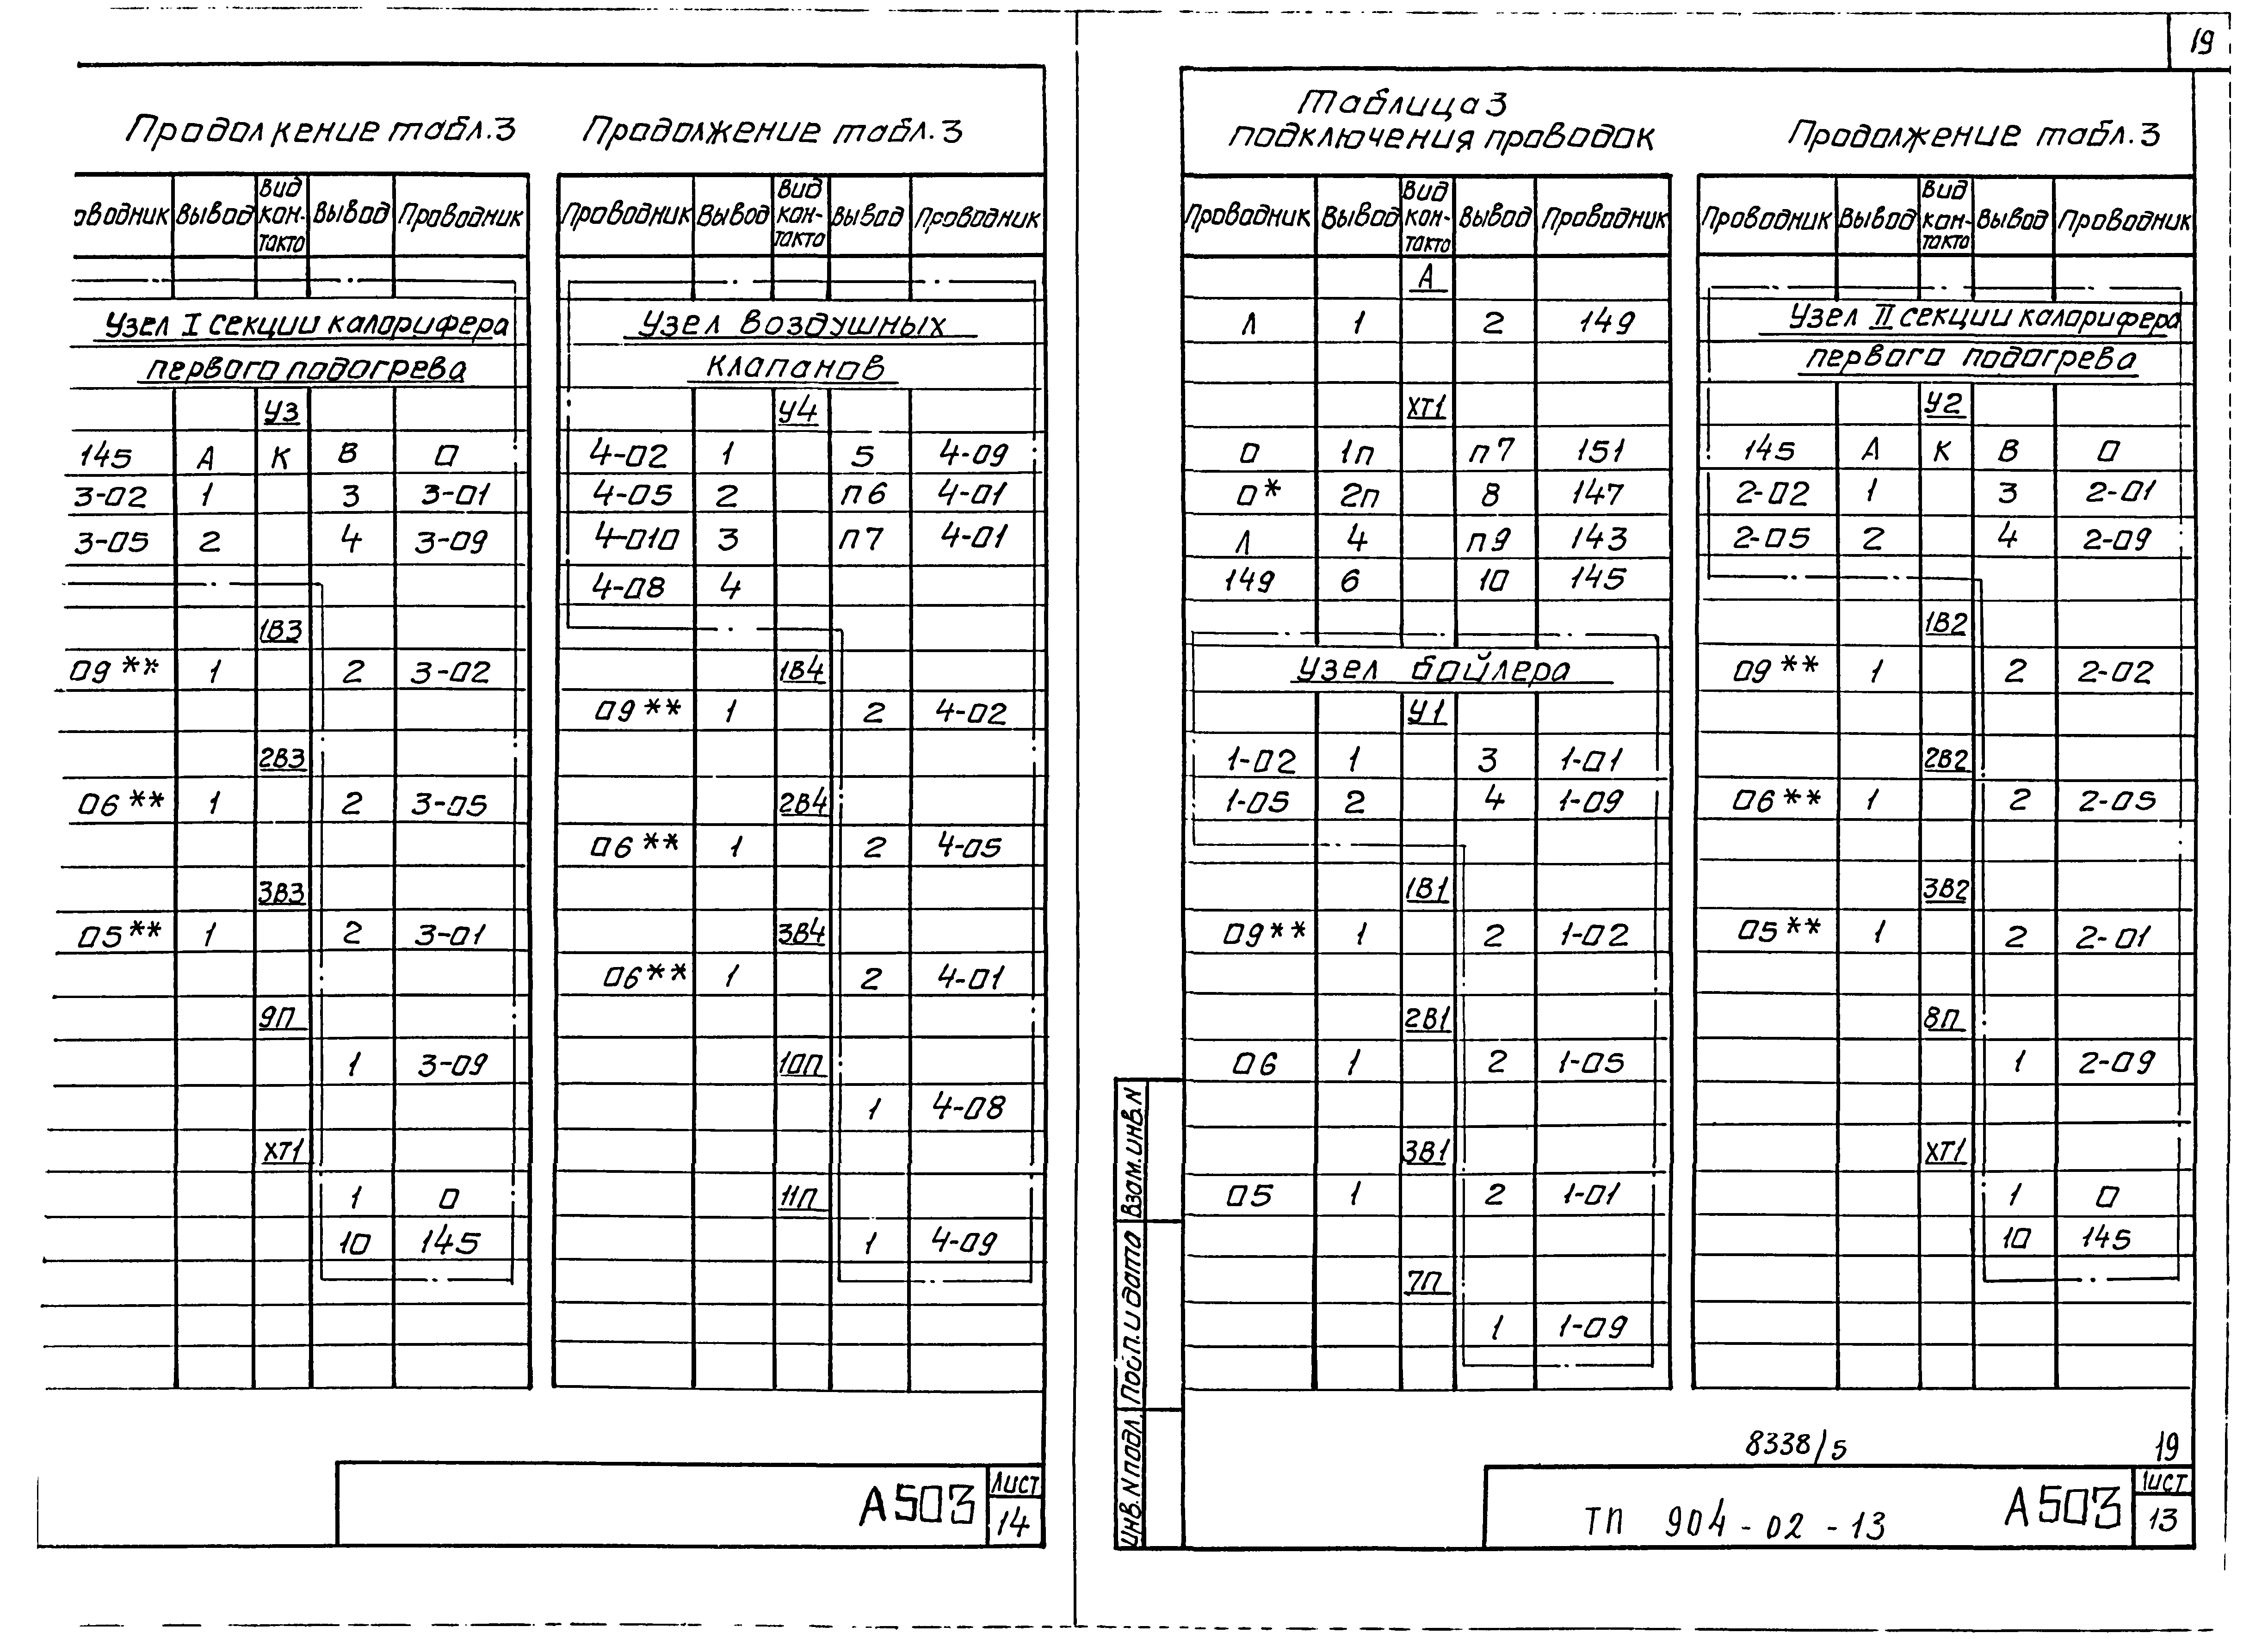 19
Продолжение табл.3
оводник Вывод Вид кон-такто Вывод Проводник
Узел I секции калорифера
первого подогрева
У3
145 А К В 0
3-02 1 3 3-01
3-05 2 4 3-09
1В3
09** 1 2 3-02
2В3
06** 1 2 3-05
3В3
05** 1 2 3-01
9П
1 3-09
ХТ1
1 0
10 145
Продолжение табл.3
Проводник Вывод Вид кон-такто Вывод Проводник
Узел воздушных
клапанов
У4
4-02 1 5 4-09
4-05 2 П6 4-01
4-010 3 П7 4-01
4-08 4
1В4
09** 1 2 4-02
2В4
06** 1 2 4-05
3В4
06** 1 2 4-01
10П
1 4-08
11П
1 4-09
А503
Лист
14
Таблица 3
подключения проводок
Проводник Вывод Вид кон-такто Вывод Проводник
А
Л 1 2 149
ХТ1
0 1п п7 151
0* 2п 8 147
Л 4 п9 143
149 6 10 145
Узел бойлера
У1
1-02 1 3 1-01
1-05 2 4 1-09
1В1
09** 1 2 1-02
2В1
06 1 2 1-05
3В1
05 1 2 1-01
7П
1 1-09
Продолжение табл.3
Проводник Вывод Вид кон-такто Вывод Проводник
Узел II секции калорифера
первого подогрева
У2
145 А К В 0
2-02 1 3 2-01
2-05 2 4 2-09
1В2
09** 1 2 2-02
2В2
06** 1 2 2-05
3В2
05** 1 2 2-01
8П
1 2-09
ХТ1
1 0
10 145
Инв.N подл. Подп. и дата Взам.инв.N
8338/5 19
ТП 904-02-13 А503
Лист
13